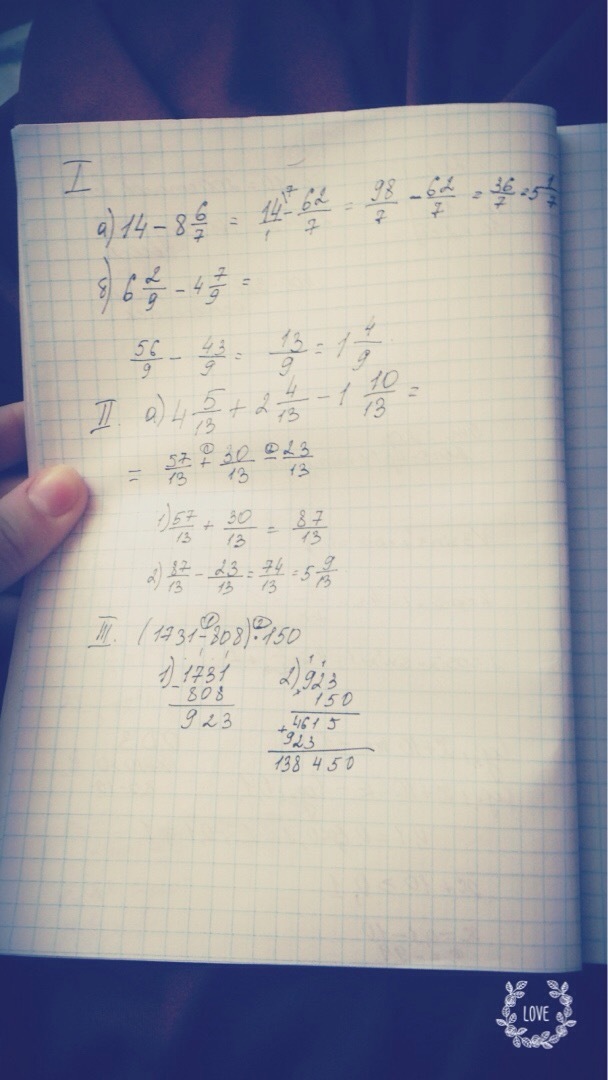 I
а) 14 - 8 6/7 = 14/1 \7 - 62/7 = 98/7 - 62/7 = 36/7 = 5 1/7
б) 6 2/9 - 4 7/9 =
56/9 - 43/9 = 13/9 = 1 4/9
II. а) 4 5/13 + 2 4/13 - 1 10/13 =
= 57/13 + 30/13 - 23/13
1) 57/13 + 30/13 = 87/13
2) 87/13 - 23/13 = 74/13 = 5 9/13
III. (1731 - 808) · 150
1) 1731
- 808
923
2) 923
× 150
+ 4615
923
138450
LOVE